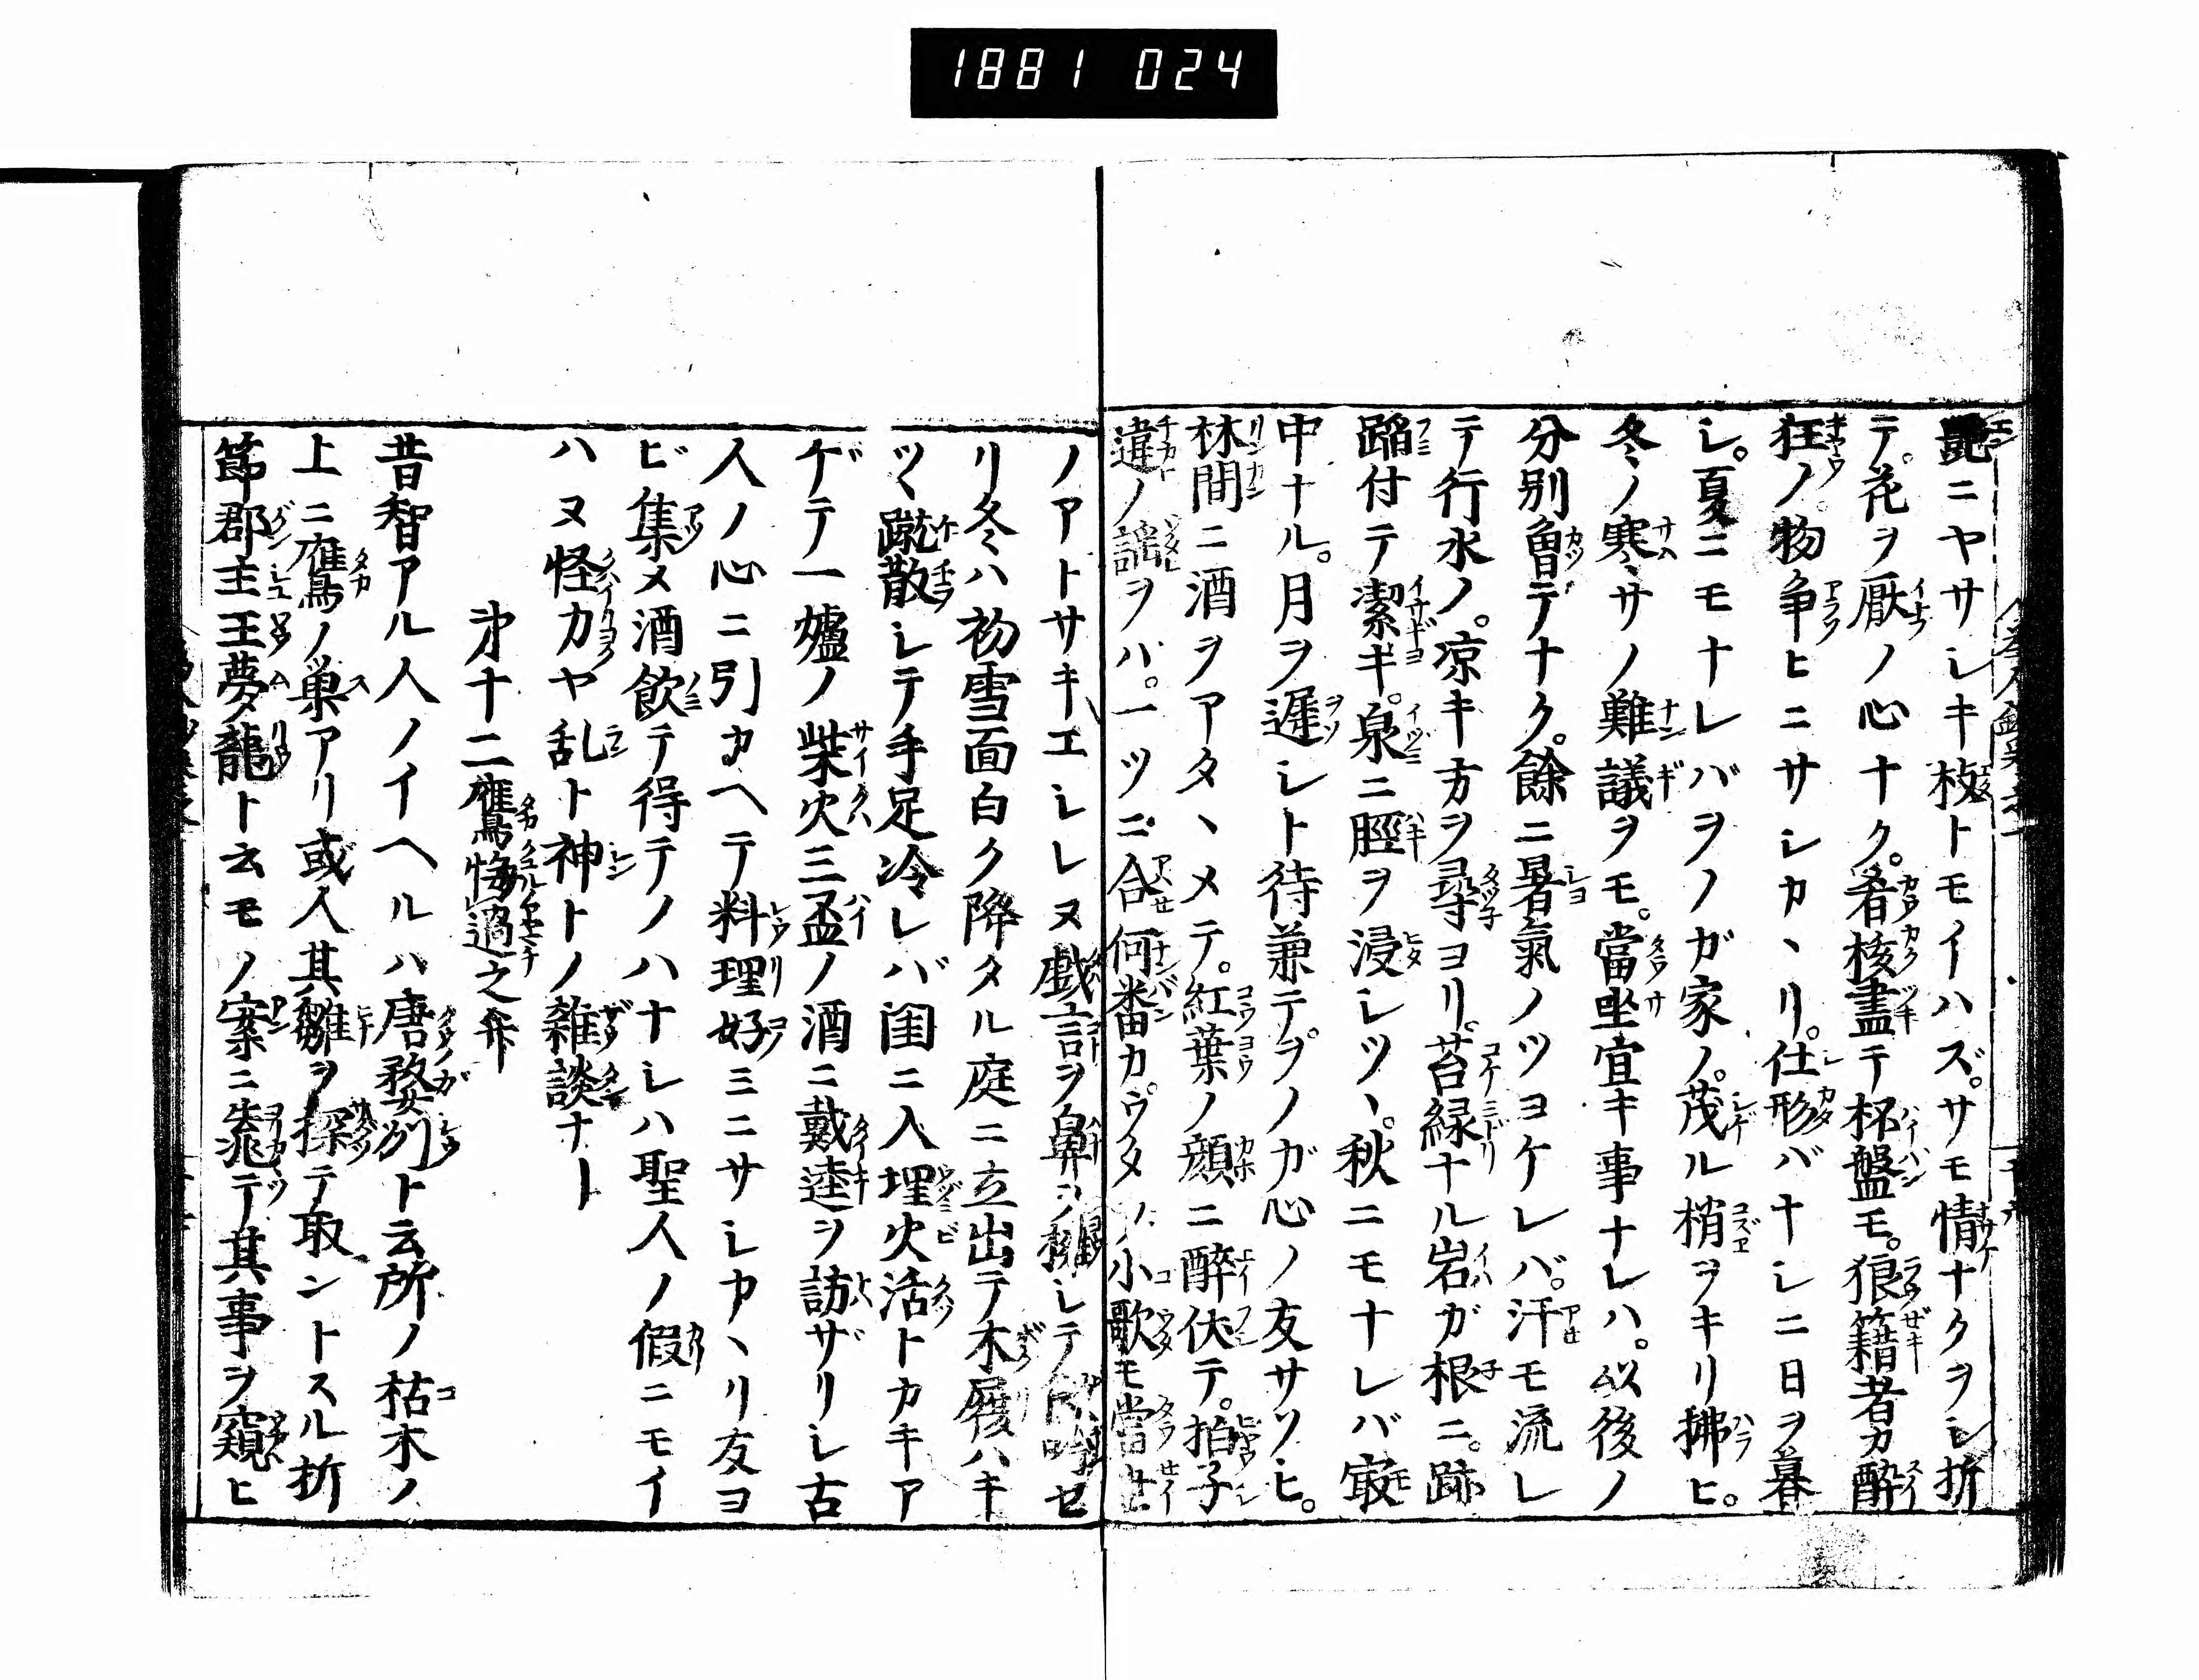 1881 024
艶ニヤサシキ枝トモイハズ。サモ情ナクヲシ折
テ。花ヲ厭ノ心ナク。肴核盡テ杯盤モ。狼籍者カ酔
狂ノ物争ヒニサシカヽリ。仕形バナシニ日ヲ暮
シ。夏ニモナレバヲノガ家ノ。茂ル梢ヲキリ拂ヒ。
冬ノ寒サノ難議ヲモ。當坐宜キ事ナレハ。以後ノ
分別曾テナク。餘ニ暑氣ノツヨケレバ。汗モ流レ
テ行水ノ。凉キ方ヲ尋ヨリ。苔緑ナル岩ガ根ニ。跡
蹈付テ潔ギ。泉ニ脛ヲ浸シツヽ。秋ニモナレバ㝡
中ナル。月ヲ遅シト待兼テヲノガ心ノ友サソヒ。
林間ニ酒ヲアタヽメテ。紅葉ノ顔ニ醉伏テ。拍子
違ノ謡ヲバ。一ツニ合何番カ。ウタノ小歌モ當世
ノアトサキエシレヌ戯言ヲ鼻シテセ
リ冬ハ初雪面白ク降タル庭ニ立出テ木履ハキ
ツヽ蹴散シテ手足冷レバ閨ニ入埋火活トカキア
ゲテ一爐ノ柴火三盃ノ酒ニ戴逵ヲ訪ザリシ古
人ノ心ニ引カヘテ料理好ミニサシカヽリ友ヨ
ビ集メ酒飲テ得テノハナシハ聖人ノ假ニモイ
ハヌ怪力ヤ乱ト神トノ雑談ナト
㐧十二鷹鳥悔過之弁
昔智アル人ノイヘルハ唐婺州ト云所ノ枯木ノ
上ニ鷹ノ巣アリ或人其雛ヲ探テ取ントスル折
節郡主王夢龍ト云モノ案ニ凭テ其事ヲ窺ヒ